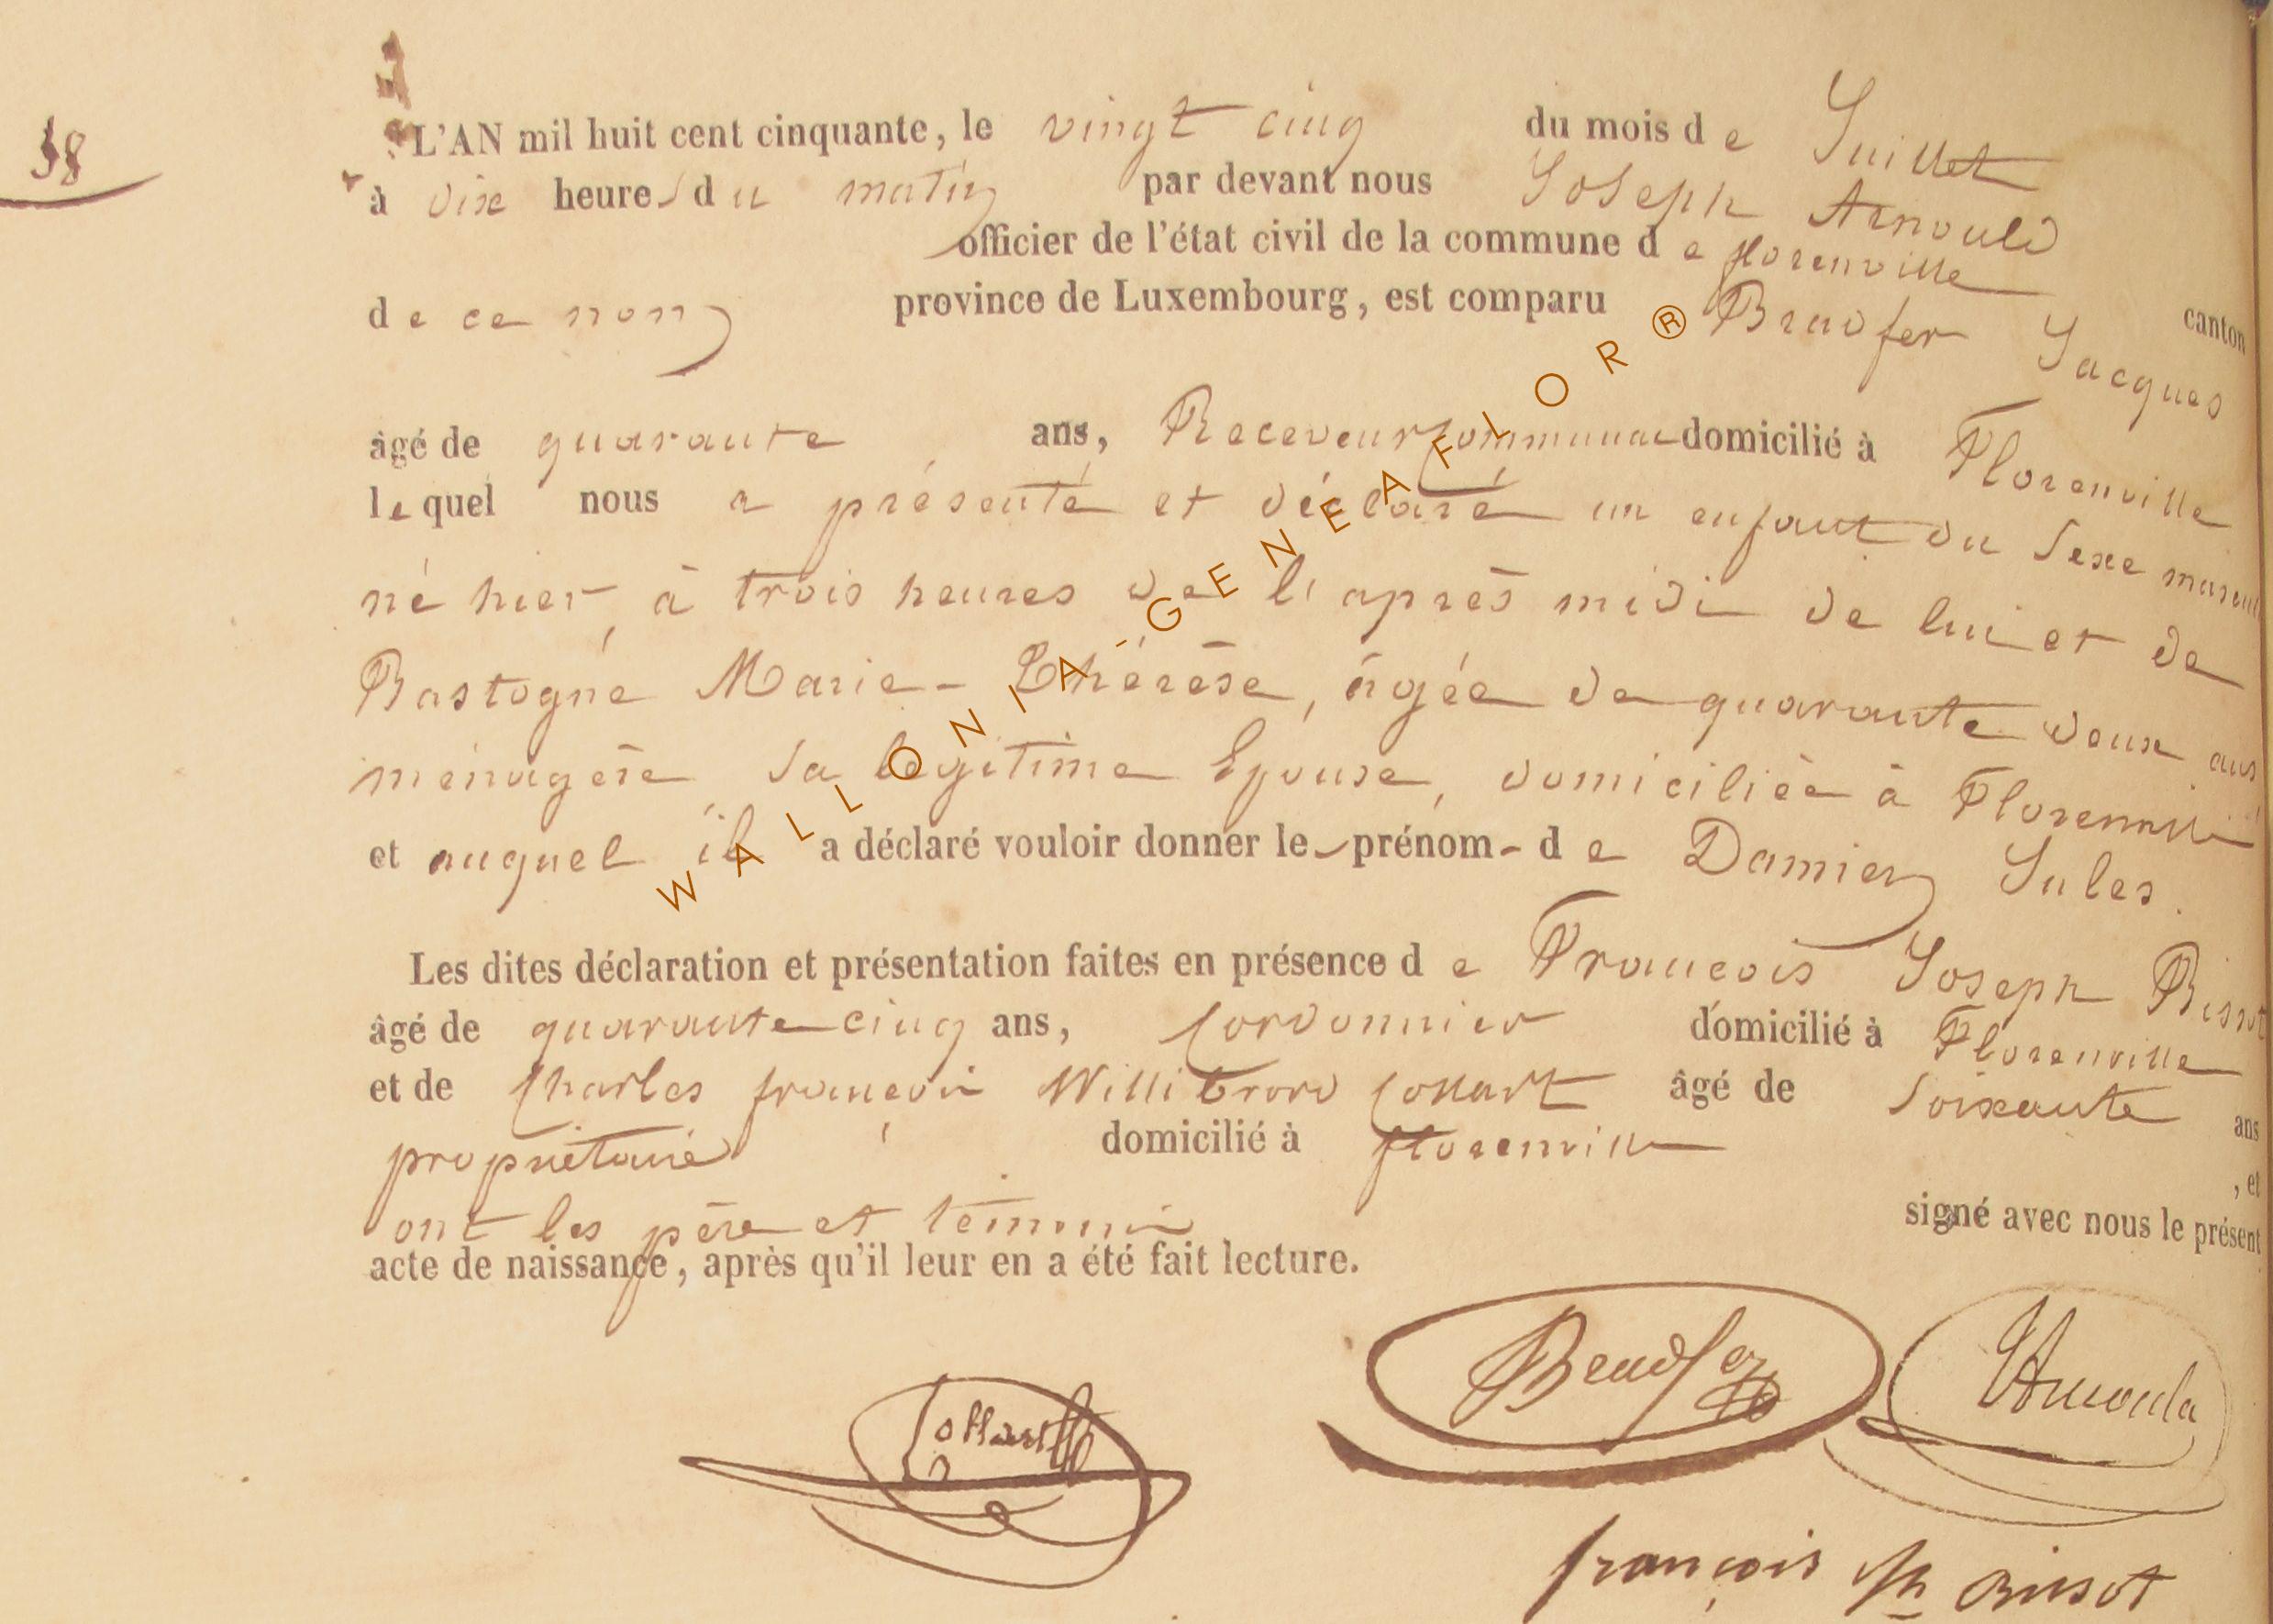 38
L'AN mil huit cent cinquante, le vingt cinq du mois de Juillet
à dix heures du matin par devant nous Joseph Arnould
officier de l'état civil de la commune de florenville canton
de ce nom province de Luxembourg, est comparu Bradfer Jacques
âgé de quarante ans, Receveur communal domicilié à Florenville
lequel nous a présenté et déclaré un enfant du Sexe mascul
né hier, à trois heures de l'après midi de lui et de
Bastogne Marie-Thérèse, âgée de quarante deux ans
ménagère sa légitime Epouse, domiciliée à Florenville
et auquel il a déclaré vouloir donner le prénom de Damien Jules.
Les dites déclaration et présentation faites en présence de François Joseph Bissot
âgé de quarante cinq ans, Cordonnier domicilié à Florenville
et de Charles françois Willibrord Collart âgé de Soixante ans
propriétaire domicilié à florenville , et
ont les père et témoins signé avec nous le présent
acte de naissance, après qu'il leur en a été fait lecture.
Bradfer
JArnould
Collart
françois Jph Bissot
WALLONIA-GENEAFLOR®